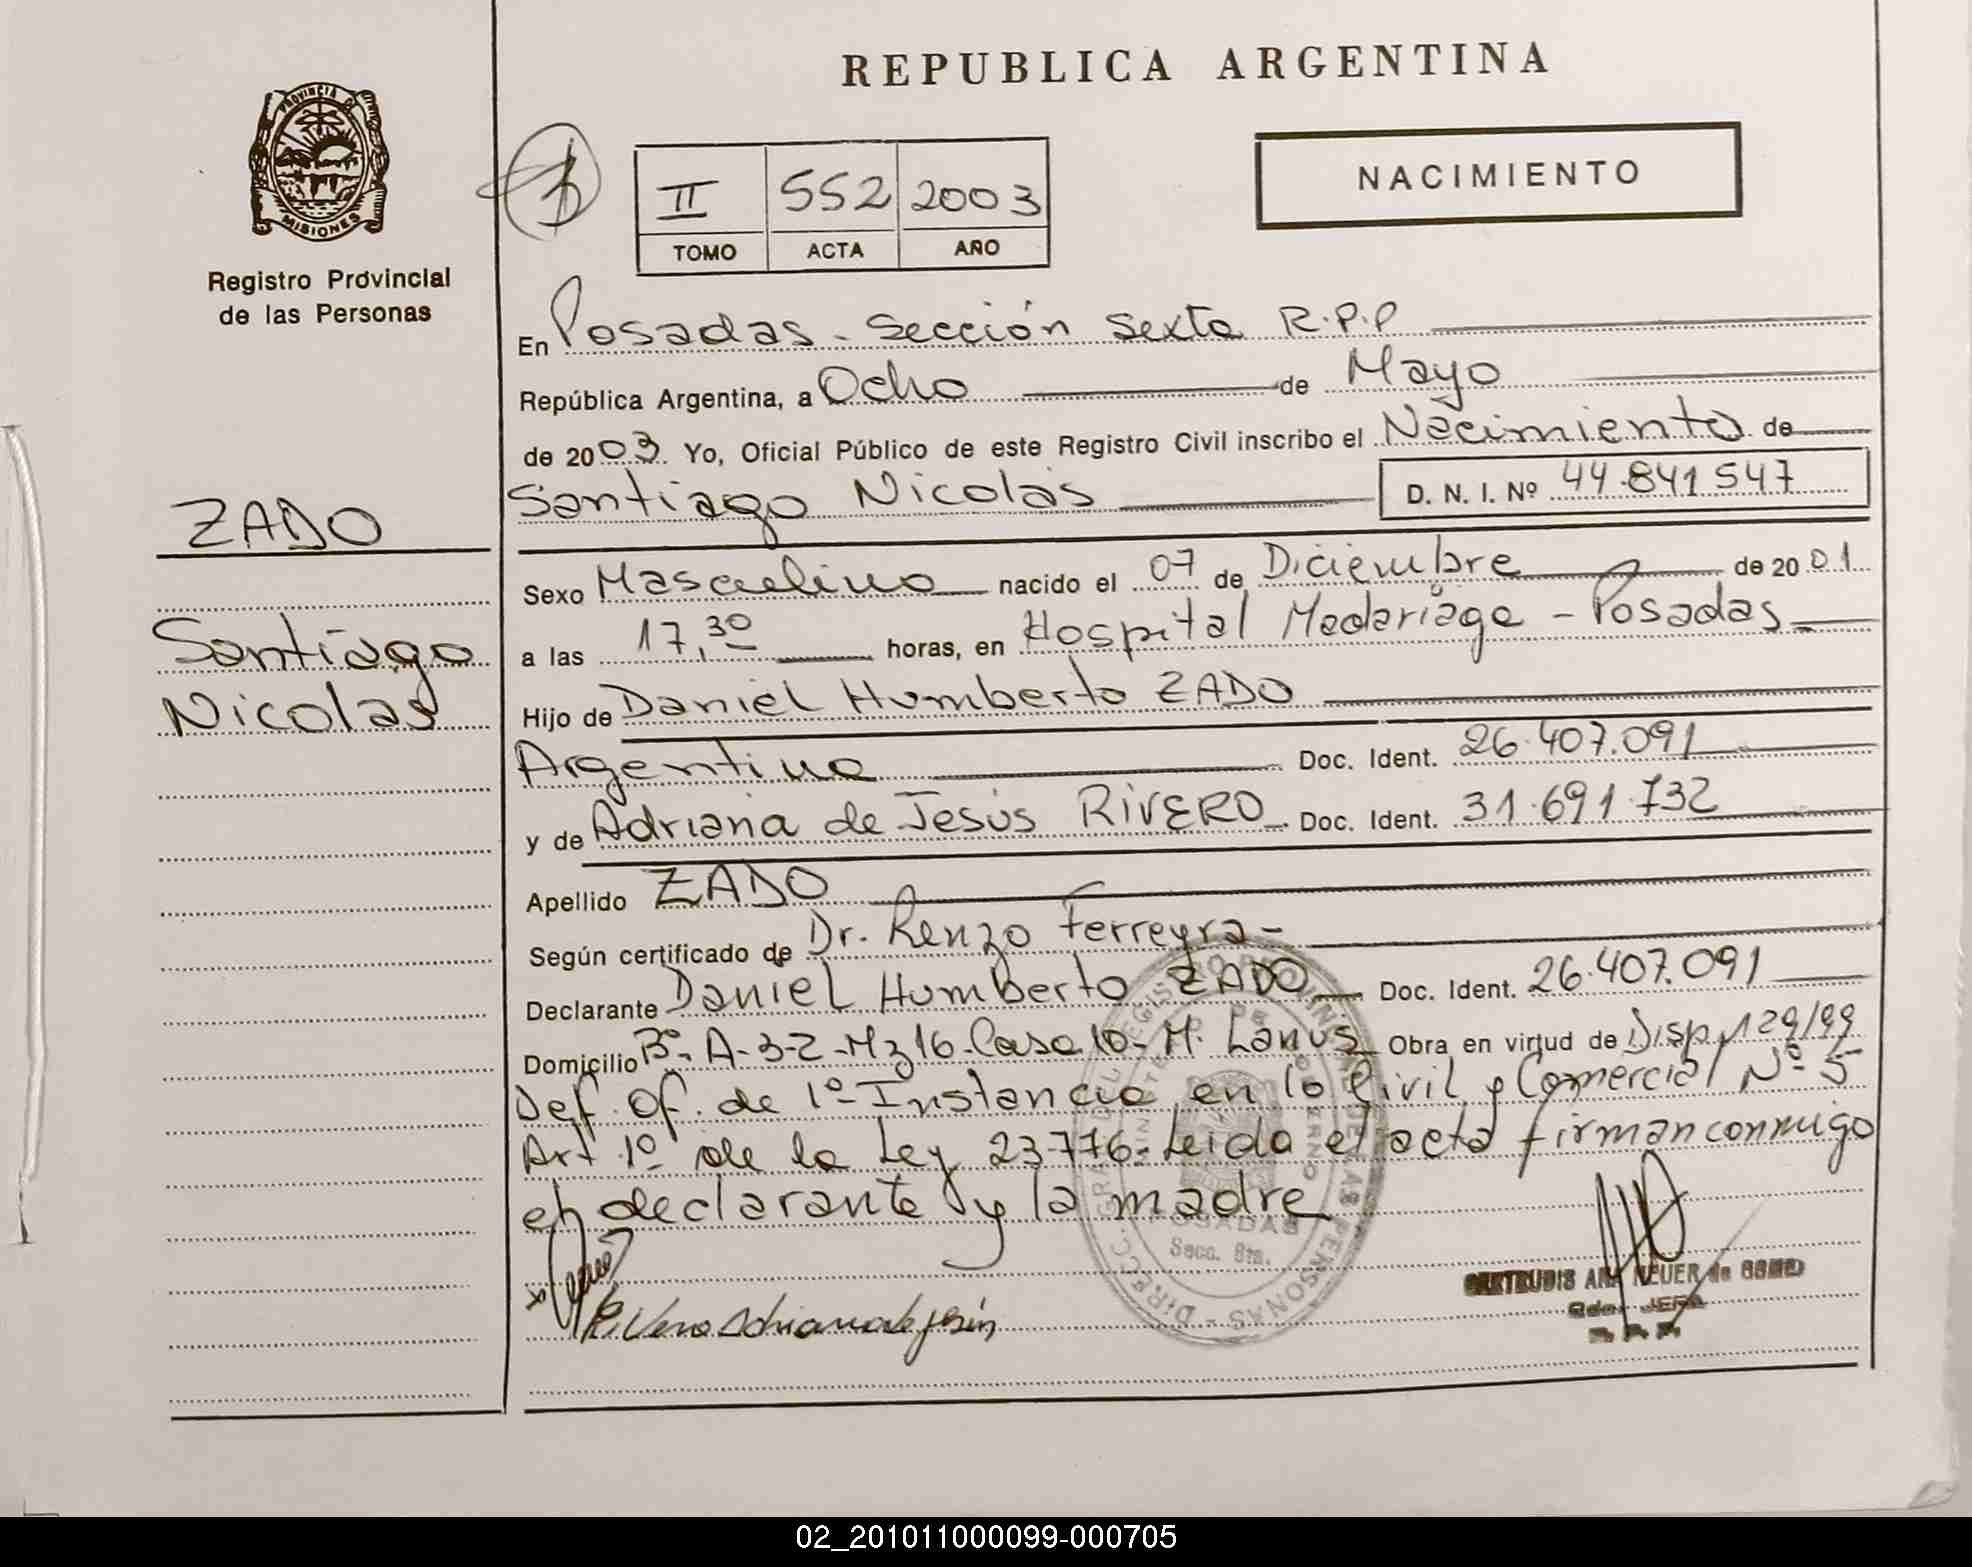 REPUBLICA ARGENTINA
PROVINCIA DE MISIONES
Registro Provincial
de las Personas
II 552 2003
TOMO ACTA AÑO
NACIMIENTO
En Posadas - Sección Sexta R.P.P
República Argentina, a Ocho de Mayo
de 2003 Yo, Oficial Público de este Registro Civil inscribo el Nacimiento de
Santiago Nicolás D. N. I. Nº 44.841547
ZADO
Santiago
Nicolas
Sexo Masculino nacido el 07 de Diciembre de 2001
a las 17,30 horas, en Hospital Madariaga - Posadas
Hijo de Daniel Humberto ZADO
Argentina Doc. Ident. 26.407.091
y de Adriana de Jesús RIVERO Doc. Ident. 31.691.732
Apellido ZADO
Según certificado de Dr. Renzo Ferreyra-
Declarante Daniel Humberto ZADO Doc. Ident. 26.407.091
Domicilio Bº- A-3-2-Mz16-Casa 10- M. Lanús Obra en virtud de Disp. 129/99
Def. Of. de 1º Instancia en lo Civil y Comercial Nº 5
Art 1º de la Ley 23776- Leida el acta firman conmigo
el declarante y la madre
Rivero Adriana de Jesús
POSADAS
Secc. 6ta.
02_201011000099-000705